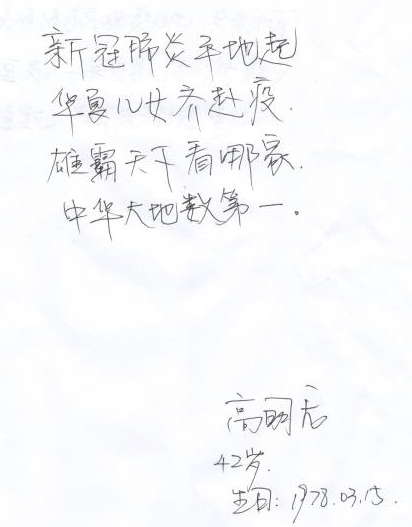 新冠肺炎平地起
华夏儿女齐赴疫.
雄霸天下看哪家.
中华大地数第一。
高明
42岁.
生日: 1978.03.15.